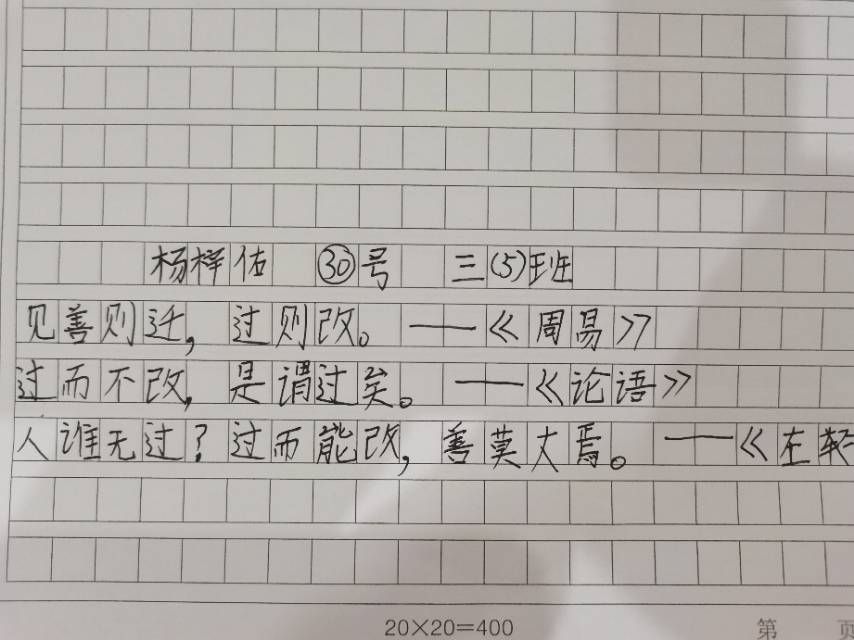 杨梓佑 ㉚号 三(5)班
见善则迁，过则改。——《周易》
过而不改，是谓过矣。——《论语》
人谁无过？过而能改，善莫大焉。——《左
20×20=400 第 页